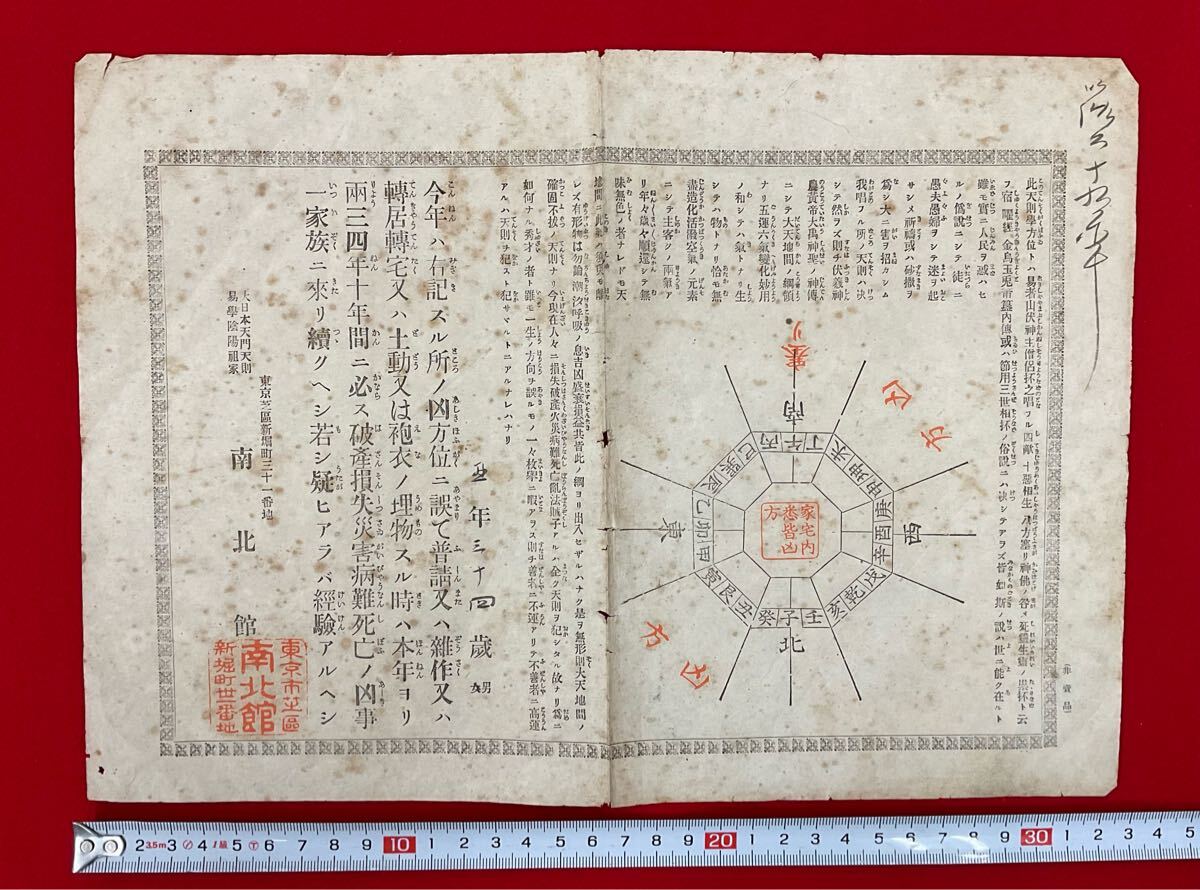 明治三十九年
(非賣品)
此天則學方位トハ易者山伏神主僧侶抔之唱フル四獻十惡相生八方塞リ神佛ノ咎メ死靈生靈ノ祟抔ト云
フ宿曜經金烏玉兎簠簋內傳或ハ節用三世相抔ノ俗說ニハ決シテアラズ皆如斯ノ說ハ世ニ能ク在ルト
雖モ實ニ人民ヲ惑ハセ
ルノ僞說ニシテ徒ニ
愚夫愚婦ヲシテ迷ヲ起
サシメ祈禱或ハ砂撒ヲ
爲シ大ニ害ヲ招カシム
我唱フル所ノ天則ハ決
シテ然ラズ則チ伏羲神
農黃帝大禹神聖ノ神傳
ニシテ大天地間ノ綱領
ナリ五運六氣變化妙用
ノ和シテハ氣トナリ生
シテハ物トナリ恰モ無
盡造化活潑空氣ノ元素
ニシテ主客ノ兩氣ア
リ年々歲々順還シテ無
味無色ノ者ナレドモ天
地間ニ此氣ノ
レズ有形物は勿論潮汐呼吸ノ息吉凶盛衰損益共皆此ノ綱ヨリ出入セザルハナク是ヲ無形則大天地間ノ
確固不拔ノ天則ナリ今現在人々ニ損失破產火災病難死亡亂法賊子アルハ全ク天則ヲ犯シタル故ナリ爲ニ
如何ナル秀才ノ者ト雖モ一生ノ方向ヲ誤ルモノ一々枚擧ニ暇アラス則チ善者ニ不運アリテ不善者ニ高運
アルハ天則ヲ犯スト犯サヾルトニアルナレハナリ
塞リ
凶方
凶方
南
西
北
東
丙午丁
未坤申
庚酉辛
戌乾亥
壬子癸
丑艮寅
甲卯乙
辰巽巳
家宅內
悉皆凶
方
丑年三十四歲
男
女
今年ハ右記スル所ノ凶方位ニ誤て普請又ハ雜作又ハ
轉居轉宅又ハ土動又は袍衣ノ埋物スル時ハ本年ヨリ
兩三四年十年間ニ必ス破產損失災害病難死亡ノ凶事
一家族ニ來リ續クヘシ若シ疑ヒアラバ經驗アルヘシ
東京芝區新堀町三十一番地
大日本天門天則
易學陰陽祖家
南北館
東京市芝區
南北館
新堀町卅一番地
2 3.5m 3 4 5 6 7 8 9 10 1 2 3 4 5 6 7 8 9 20 1 2 3 4 5 6 7 8 9 30 1 2 3 4 5